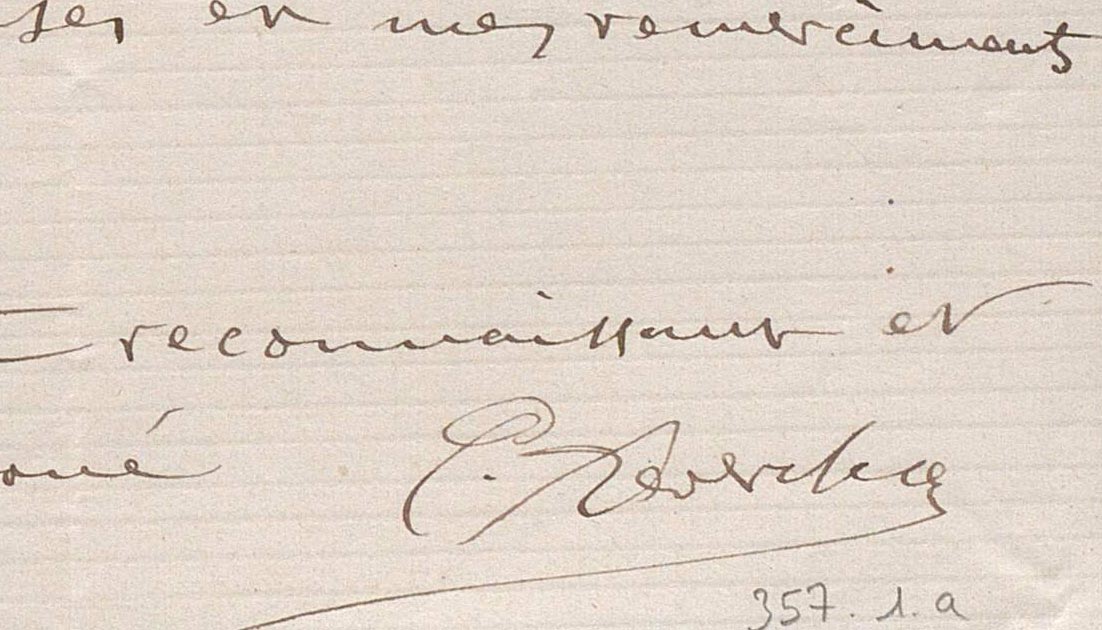 ses et mes remerciments
reconnaissant et
oué
357. 1. a